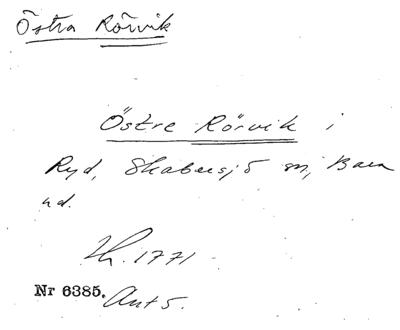 Östra Rörvik
Östre Rörvik i
Ryd, Skabersjö sn, Bara
hd.
Lk. 1771
Nr 6385. Akt 5.